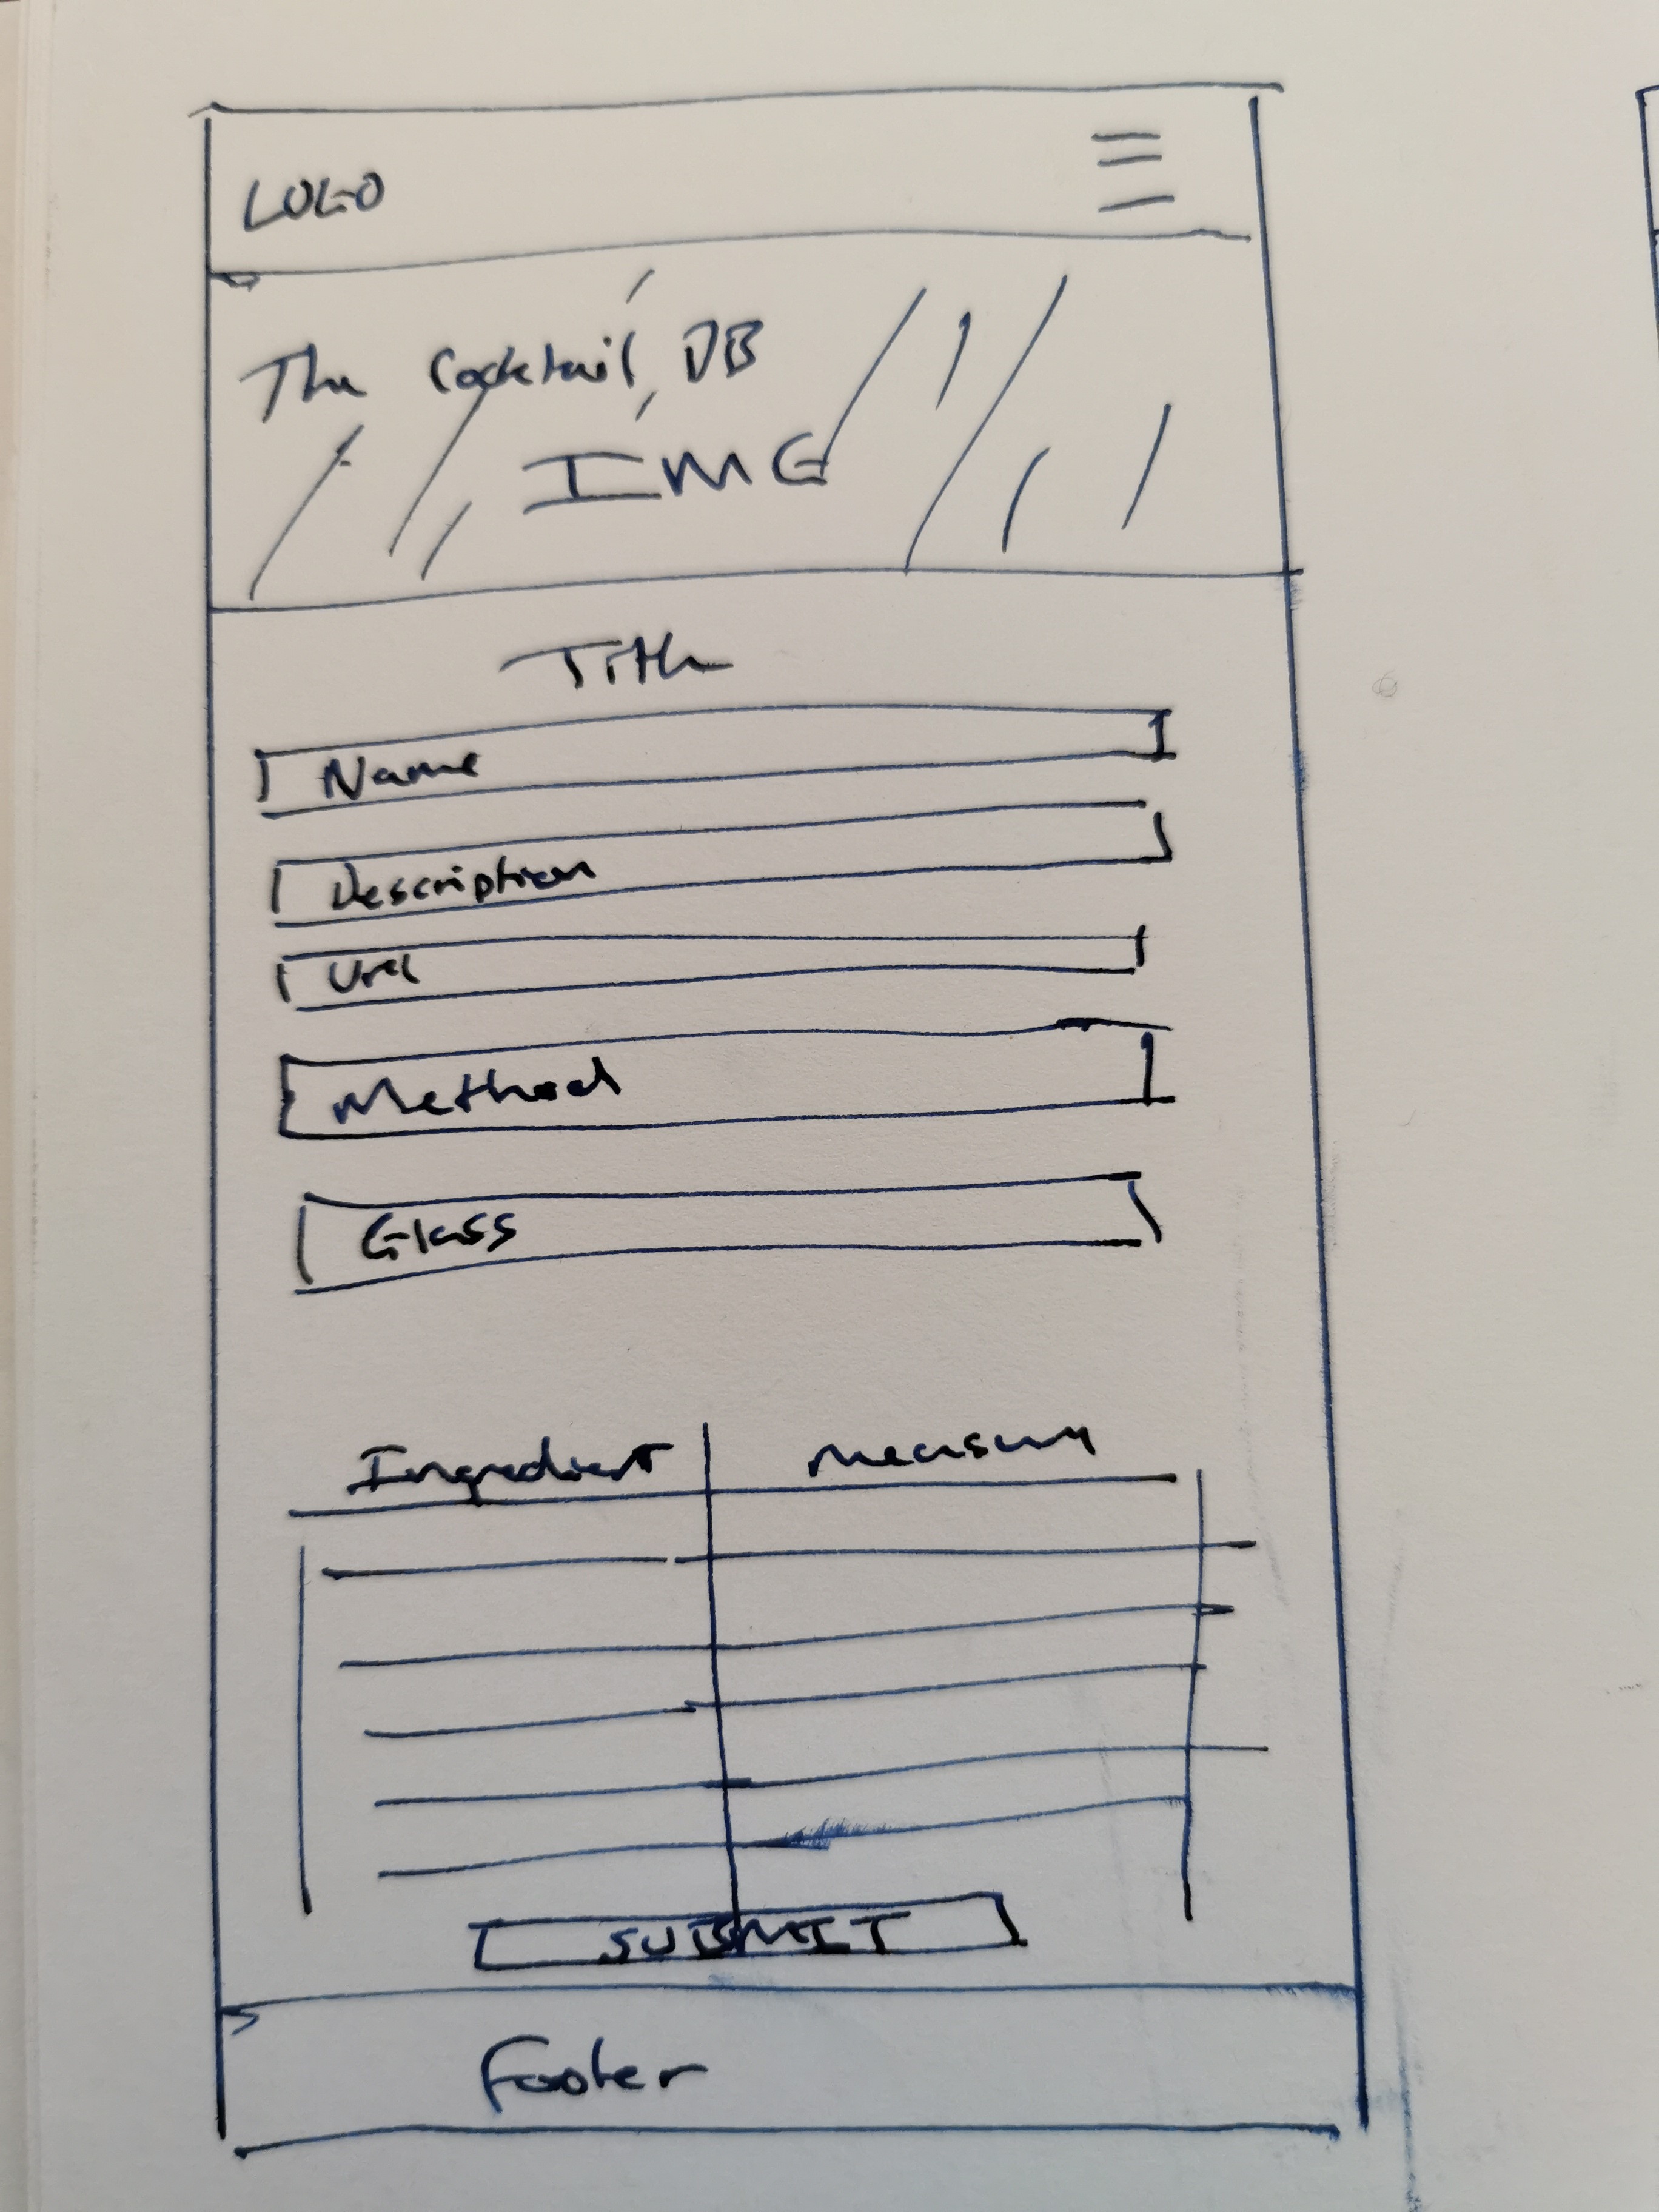 LOGO
The Cocktail DB
IMG
Title
Name
Description
Url
Method
Glass
Ingredient Measure
SUBMIT
Footer